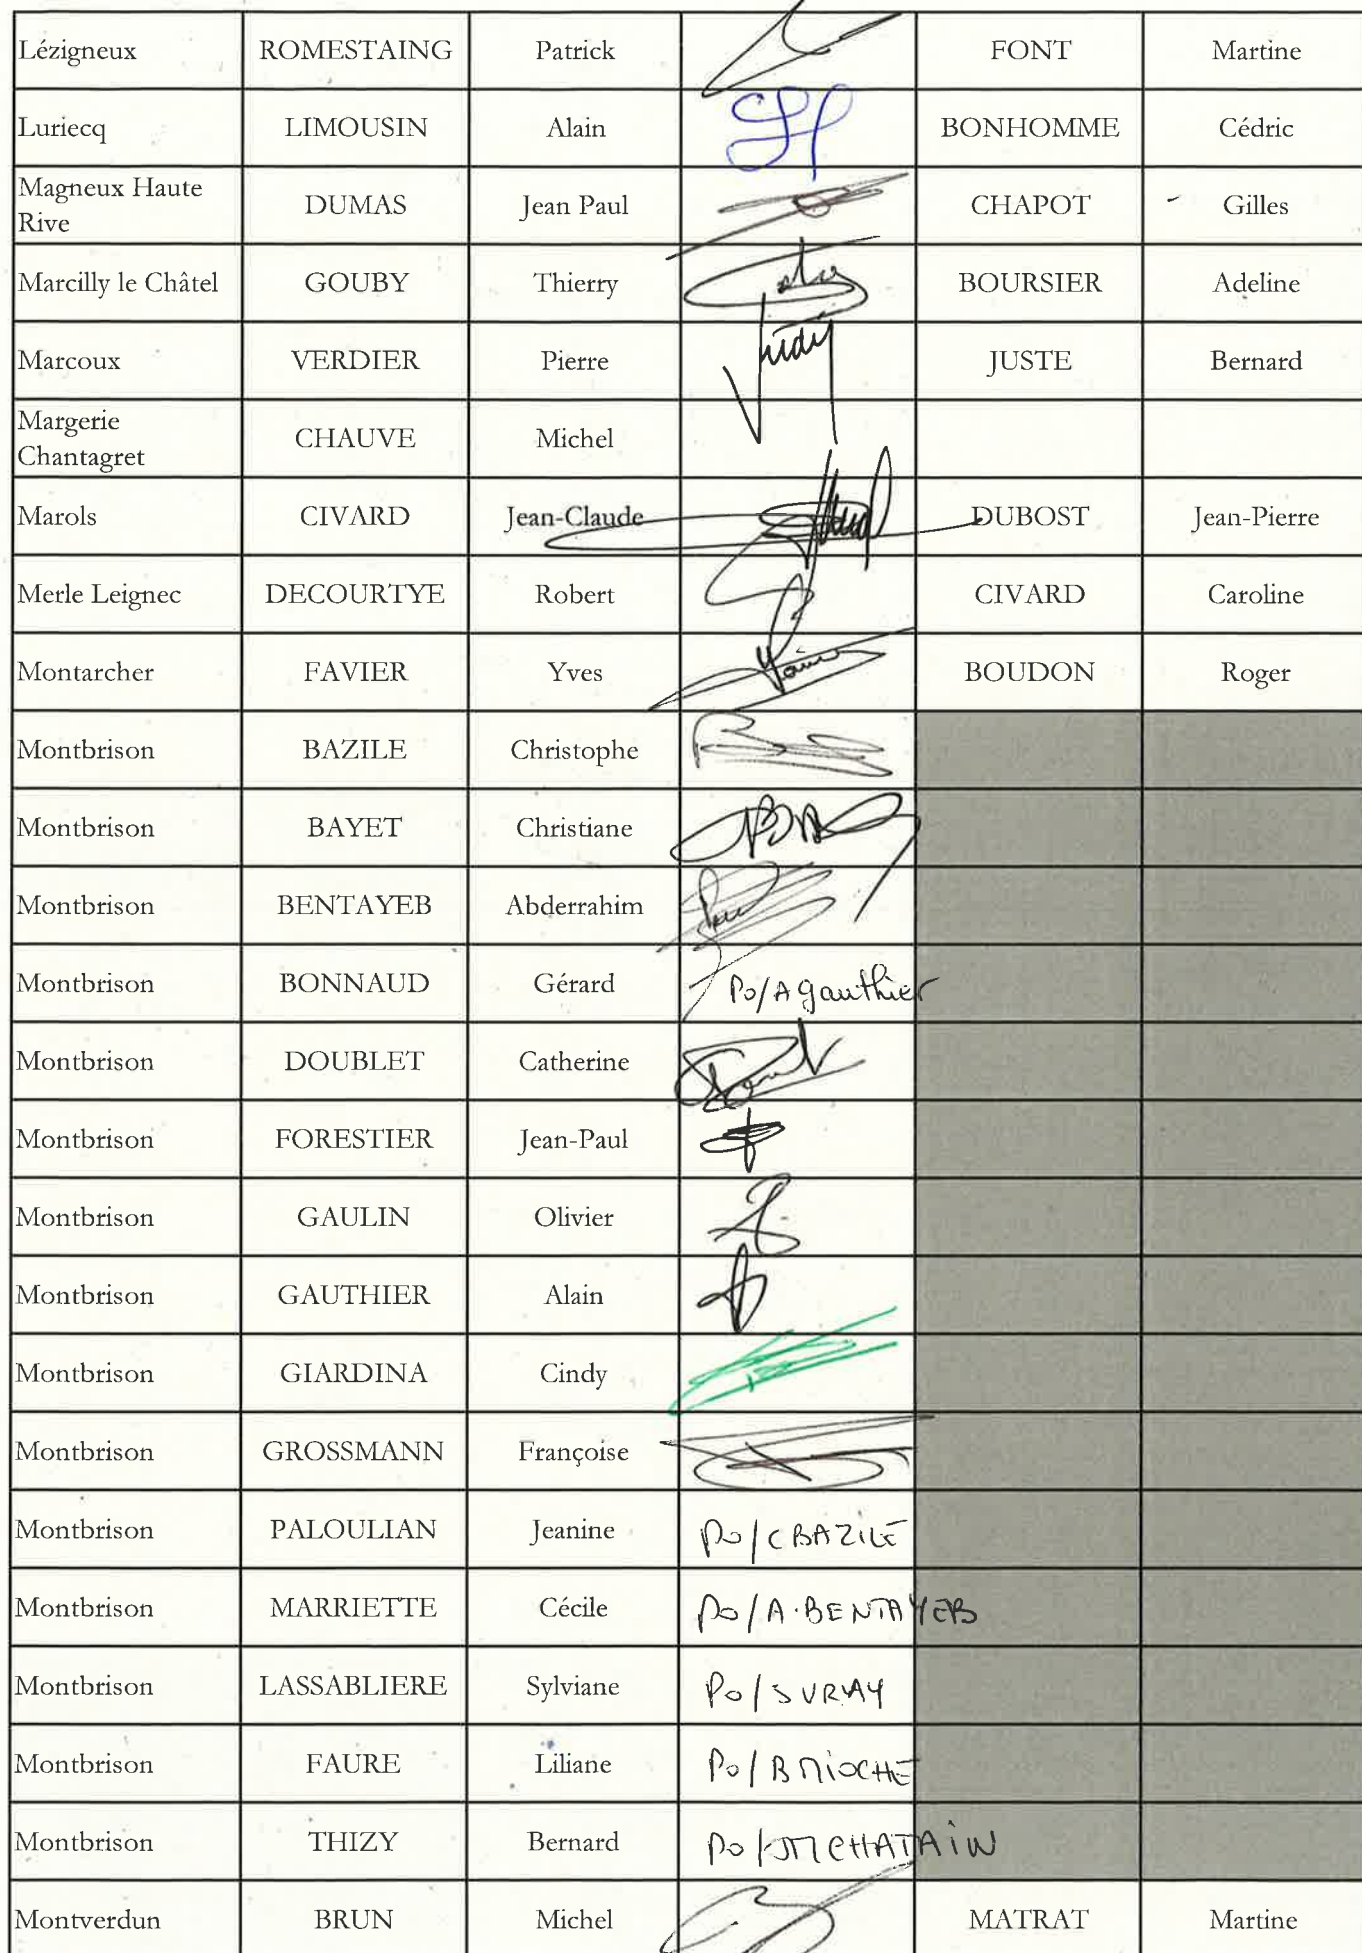 Lézigneux ROMESTAING Patrick FONT Martine
Luriecq LIMOUSIN Alain BONHOMME Cédric
Magneux Haute
Rive DUMAS Jean Paul CHAPOT Gilles
Marcilly le Châtel GOUBY Thierry BOURSIER Adeline
Marcoux VERDIER Pierre JUSTE Bernard
Margerie
Chantagret CHAUVE Michel
Marols CIVARD Jean-Claude DUBOST Jean-Pierre
Merle Leignec DECOURTYE Robert CIVARD Caroline
Montarcher FAVIER Yves BOUDON Roger
Montbrison BAZILE Christophe
Montbrison BAYET Christiane
Montbrison BENTAYEB Abderrahim
Montbrison BONNAUD Gérard Po/A gauthier
Montbrison DOUBLET Catherine
Montbrison FORESTIER Jean-Paul
Montbrison GAULIN Olivier
Montbrison GAUTHIER Alain
Montbrison GIARDINA Cindy
Montbrison GROSSMANN Françoise
Montbrison PALOULIAN Jeanine Po/C BAZILE
Montbrison MARRIETTE Cécile Po/A.BENTAYEB
Montbrison LASSABLIERE Sylviane Po/S VRAY
Montbrison FAURE Liliane Po/B MiOCHE
Montbrison THIZY Bernard Po/JM CHATAiN
Montverdun BRUN Michel MATRAT Martine